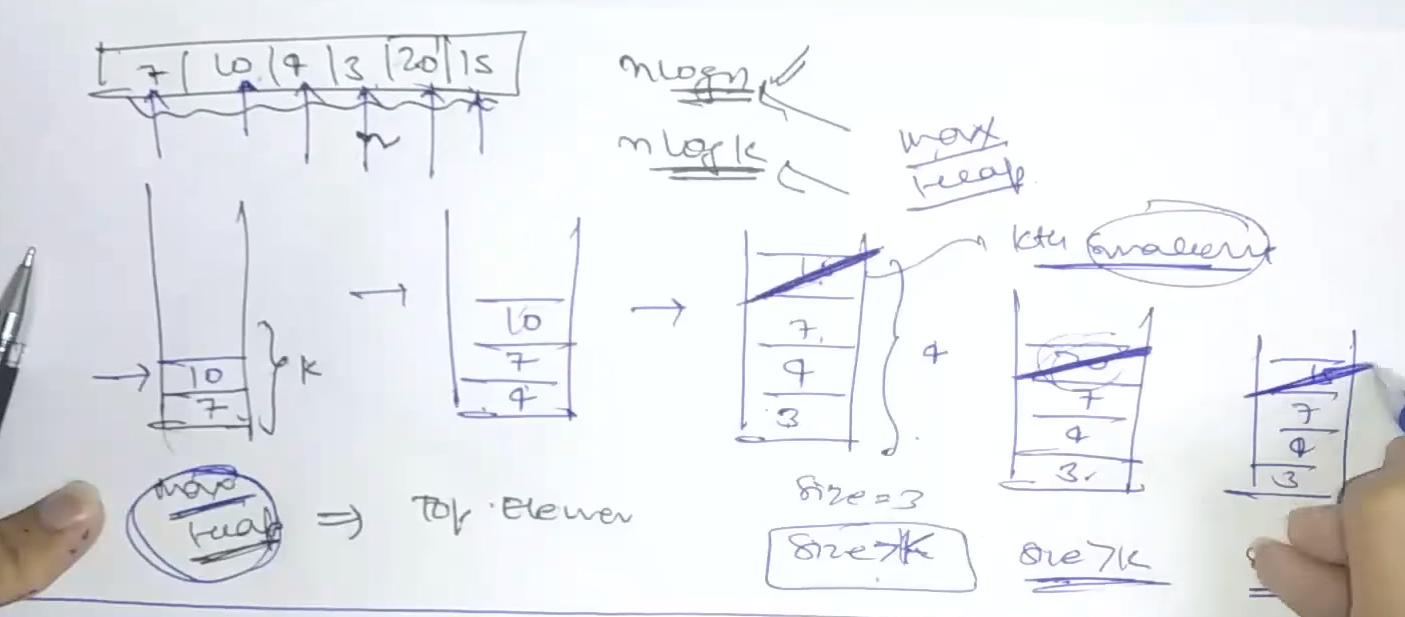 7 10 4 3 20 15
n
nlogn
nlogk
max
Heap
10
7
k
10
7
4
7
4
3
4
kth smallest
7
4
3
7
4
3
max
Heap
⇒ Top Elemen
size=3
size>k
size>k